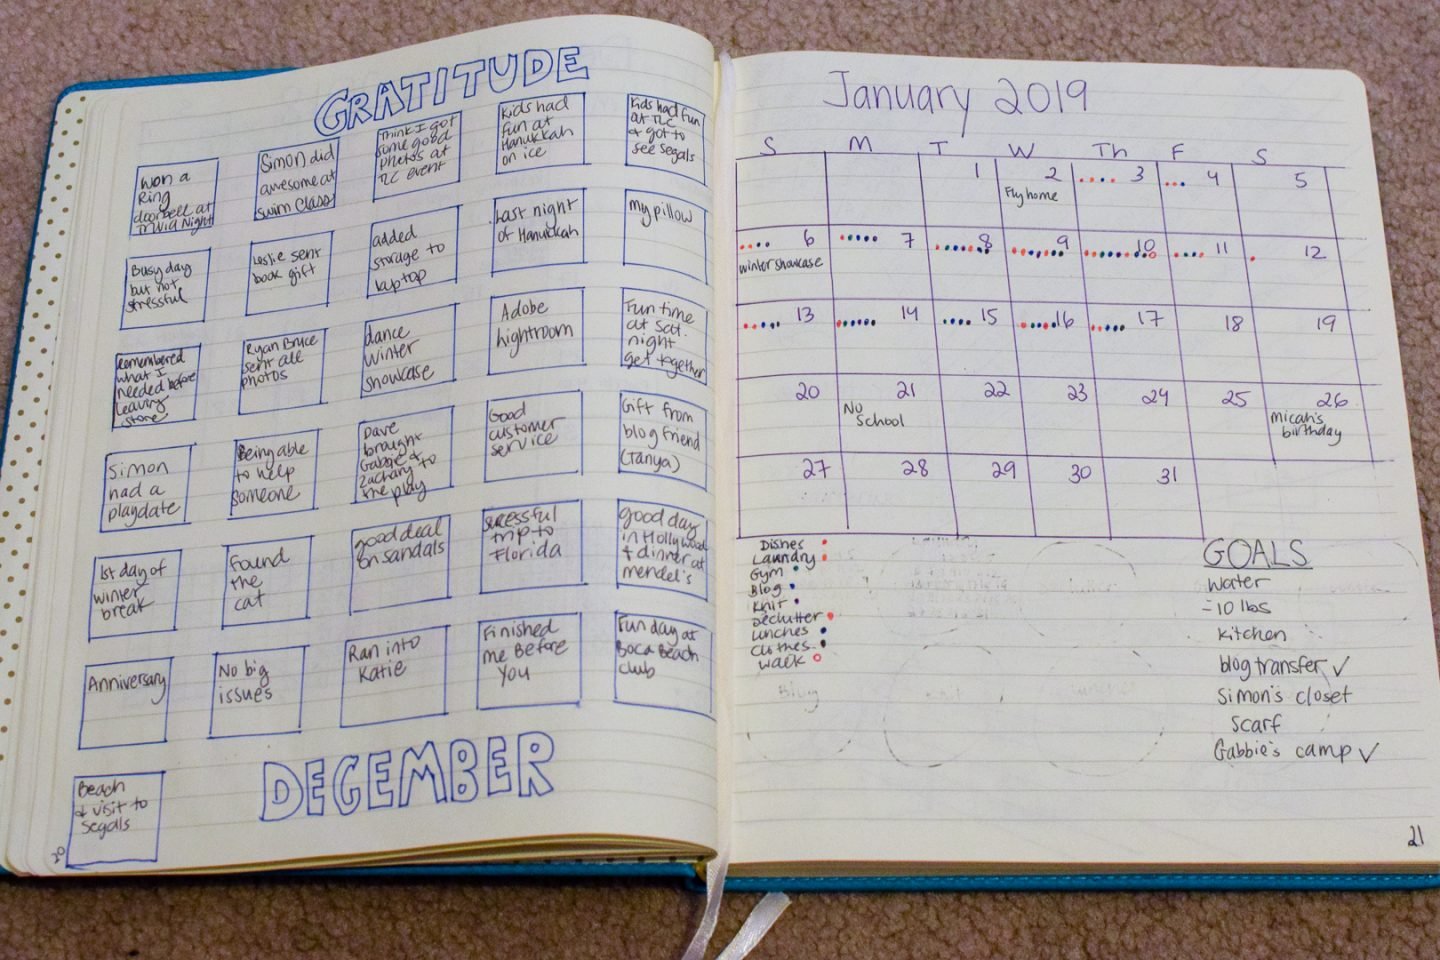 GRATITUDE
Won a
Ring
doorbell at
Trivia Night
Simon did
awesome at
swim class
Think I got
some good
photos at
TLC event
Kids had
fun at
Hanukkah
on ice
Kids had fun
at TLC
& got to
see Segals
Busy day
but not
stressful
Leslie sent
book gift
added
storage to
laptop
Last night
of Hanukkah
my pillow
Remembered
what I
needed before
leaving
store
Ryan Bruce
sent all
photos
dance
winter
showcase
Adobe
Lightroom
Fun time
at Sat.
night
get together
Simon
had a
playdate
Being able
to help
someone
Dave
brought
Gabbie &
Zachary to
the play
Good
customer
service
Gift from
blog friend
(Tanya)
1st day of
winter
break
Found
the
cat
good deal
on sandals
Sucessful
trip to
Florida
good day
in Hollywood
+ dinner at
mendel's
Anniversary
No big
issues
Ran into
Katie
Finished
Me Before
You
Fun day at
Boca Beach
club
Beach
& visit to
Segals
DECEMBER
20
January 2019
S M T W Th F S
1 2 3 4 5
Fly home
6 7 8 9 10 11 12
winter showcase
13 14 15 16 17 18 19
20 21 22 23 24 25 26
No
School
micah's
birthday
27 28 29 30 31
Dishes
Laundry
Gym
Blog
Knit
Declutter
Lunches
Clothes
Walk
GOALS
water
-10 lbs
kitchen
blog transfer ✓
Simon's closet
scarf
Gabbie's camp ✓
Blog
21